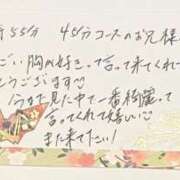 時55分 45分コースのお兄様
ごい胸が好きって言って来てくれて
とうございます♡
今まで見た中で一番綺麗って
言ってくれて嬉しい♡
また来て下さい!